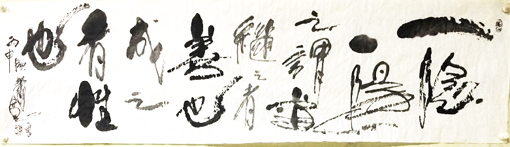 一陰
一陽
之謂道
繼之者
善也
成之
者性
也
丙申